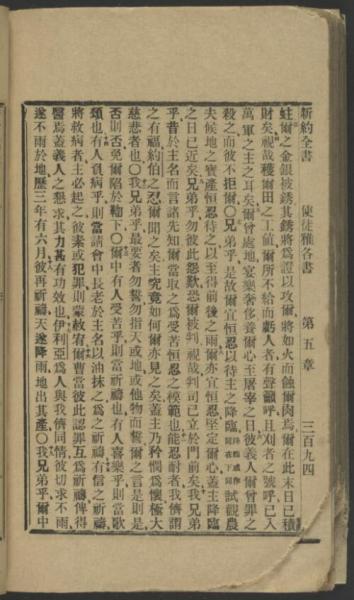 新約全書　使徒雅各書　第五章　三百九四
蛀爾之金銀被銹其銹將爲證以攻爾將如火而蝕爾肉焉爾在此末日已積
財矣視哉穫爾田之工值爾所不給而虧人者有聲籲呼且刈者之號呼已入
萬軍之主之耳矣爾曾處地宴樂奢侈養爾心至屠宰之日彼義人爾曾罪之
殺之而彼不拒爾〇兄弟乎是故爾宜恒忍以待主之降臨試觀農
夫候地之寶產恒忍待之以至得前後之雨爾亦宜恒忍堅定爾心蓋主降臨
之日已近矣兄弟乎勿彼此怨歎恐爾被判視哉判司已立於門前矣我兄弟
乎昔於主名而言諸先知爾當取之爲受苦恒忍之模範也能忍耐者我儕謂
之有福約伯之忍爾聞之矣主究竟如何爾亦見之矣蓋主乃矜憫爲懷極大
慈悲者也〇我兄弟乎最要者勿誓勿指天或地或他物而誓爾之言是則是
否則否免爾陷於鞫下〇爾中有人受苦乎則當祈禱也有人喜樂乎則當歌
頌也有人負病乎則當請會中長老於主名以油抹之爲之祈禱有信之祈禱
將救病者主必起之彼素或犯罪則蒙赦宥爾曹當彼此認罪互爲祈禱俾得
醫焉蓋義人之懇求其力甚有功效也伊利亞爲人與我儕同情彼切求不雨
遂不雨於地歷三年有六月彼再祈禱天遂降雨地出其產〇我兄弟乎爾中